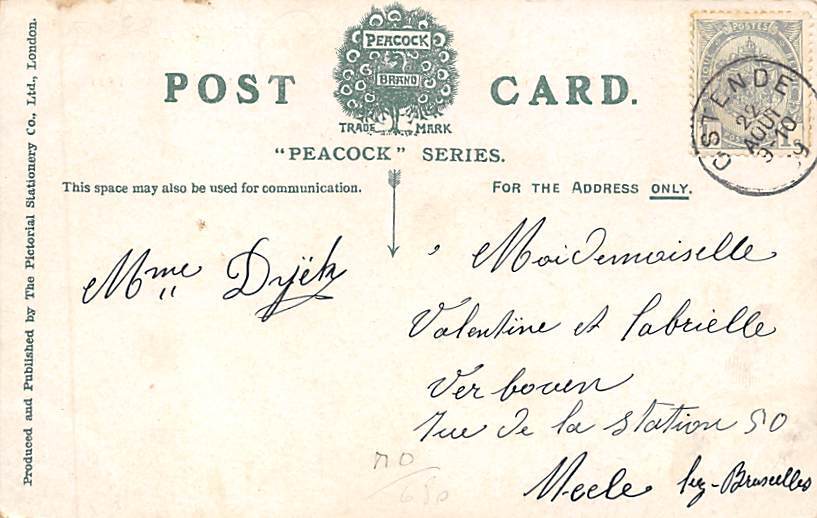 POST CARD.
PEACOCK
BRAND
TRADE MARK
"PEACOCK" SERIES.
This space may also be used for communication.
FOR THE ADDRESS ONLY.
Produced and Published by The Pictorial Stationery Co., Ltd., London.
POSTES
1
OSTENDE
22
AOUT
9
Mme Dyck
Maidemoiselle
Valentine et Gabrielle
Verboven
rue de la Station 50
Meele lez-Bruxelles